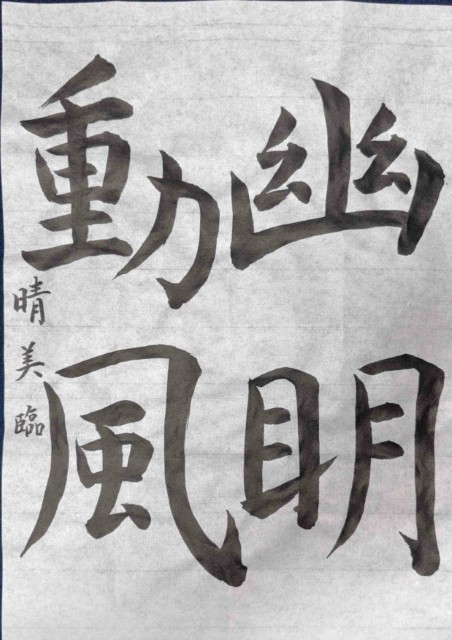 幽明
動風
晴美臨